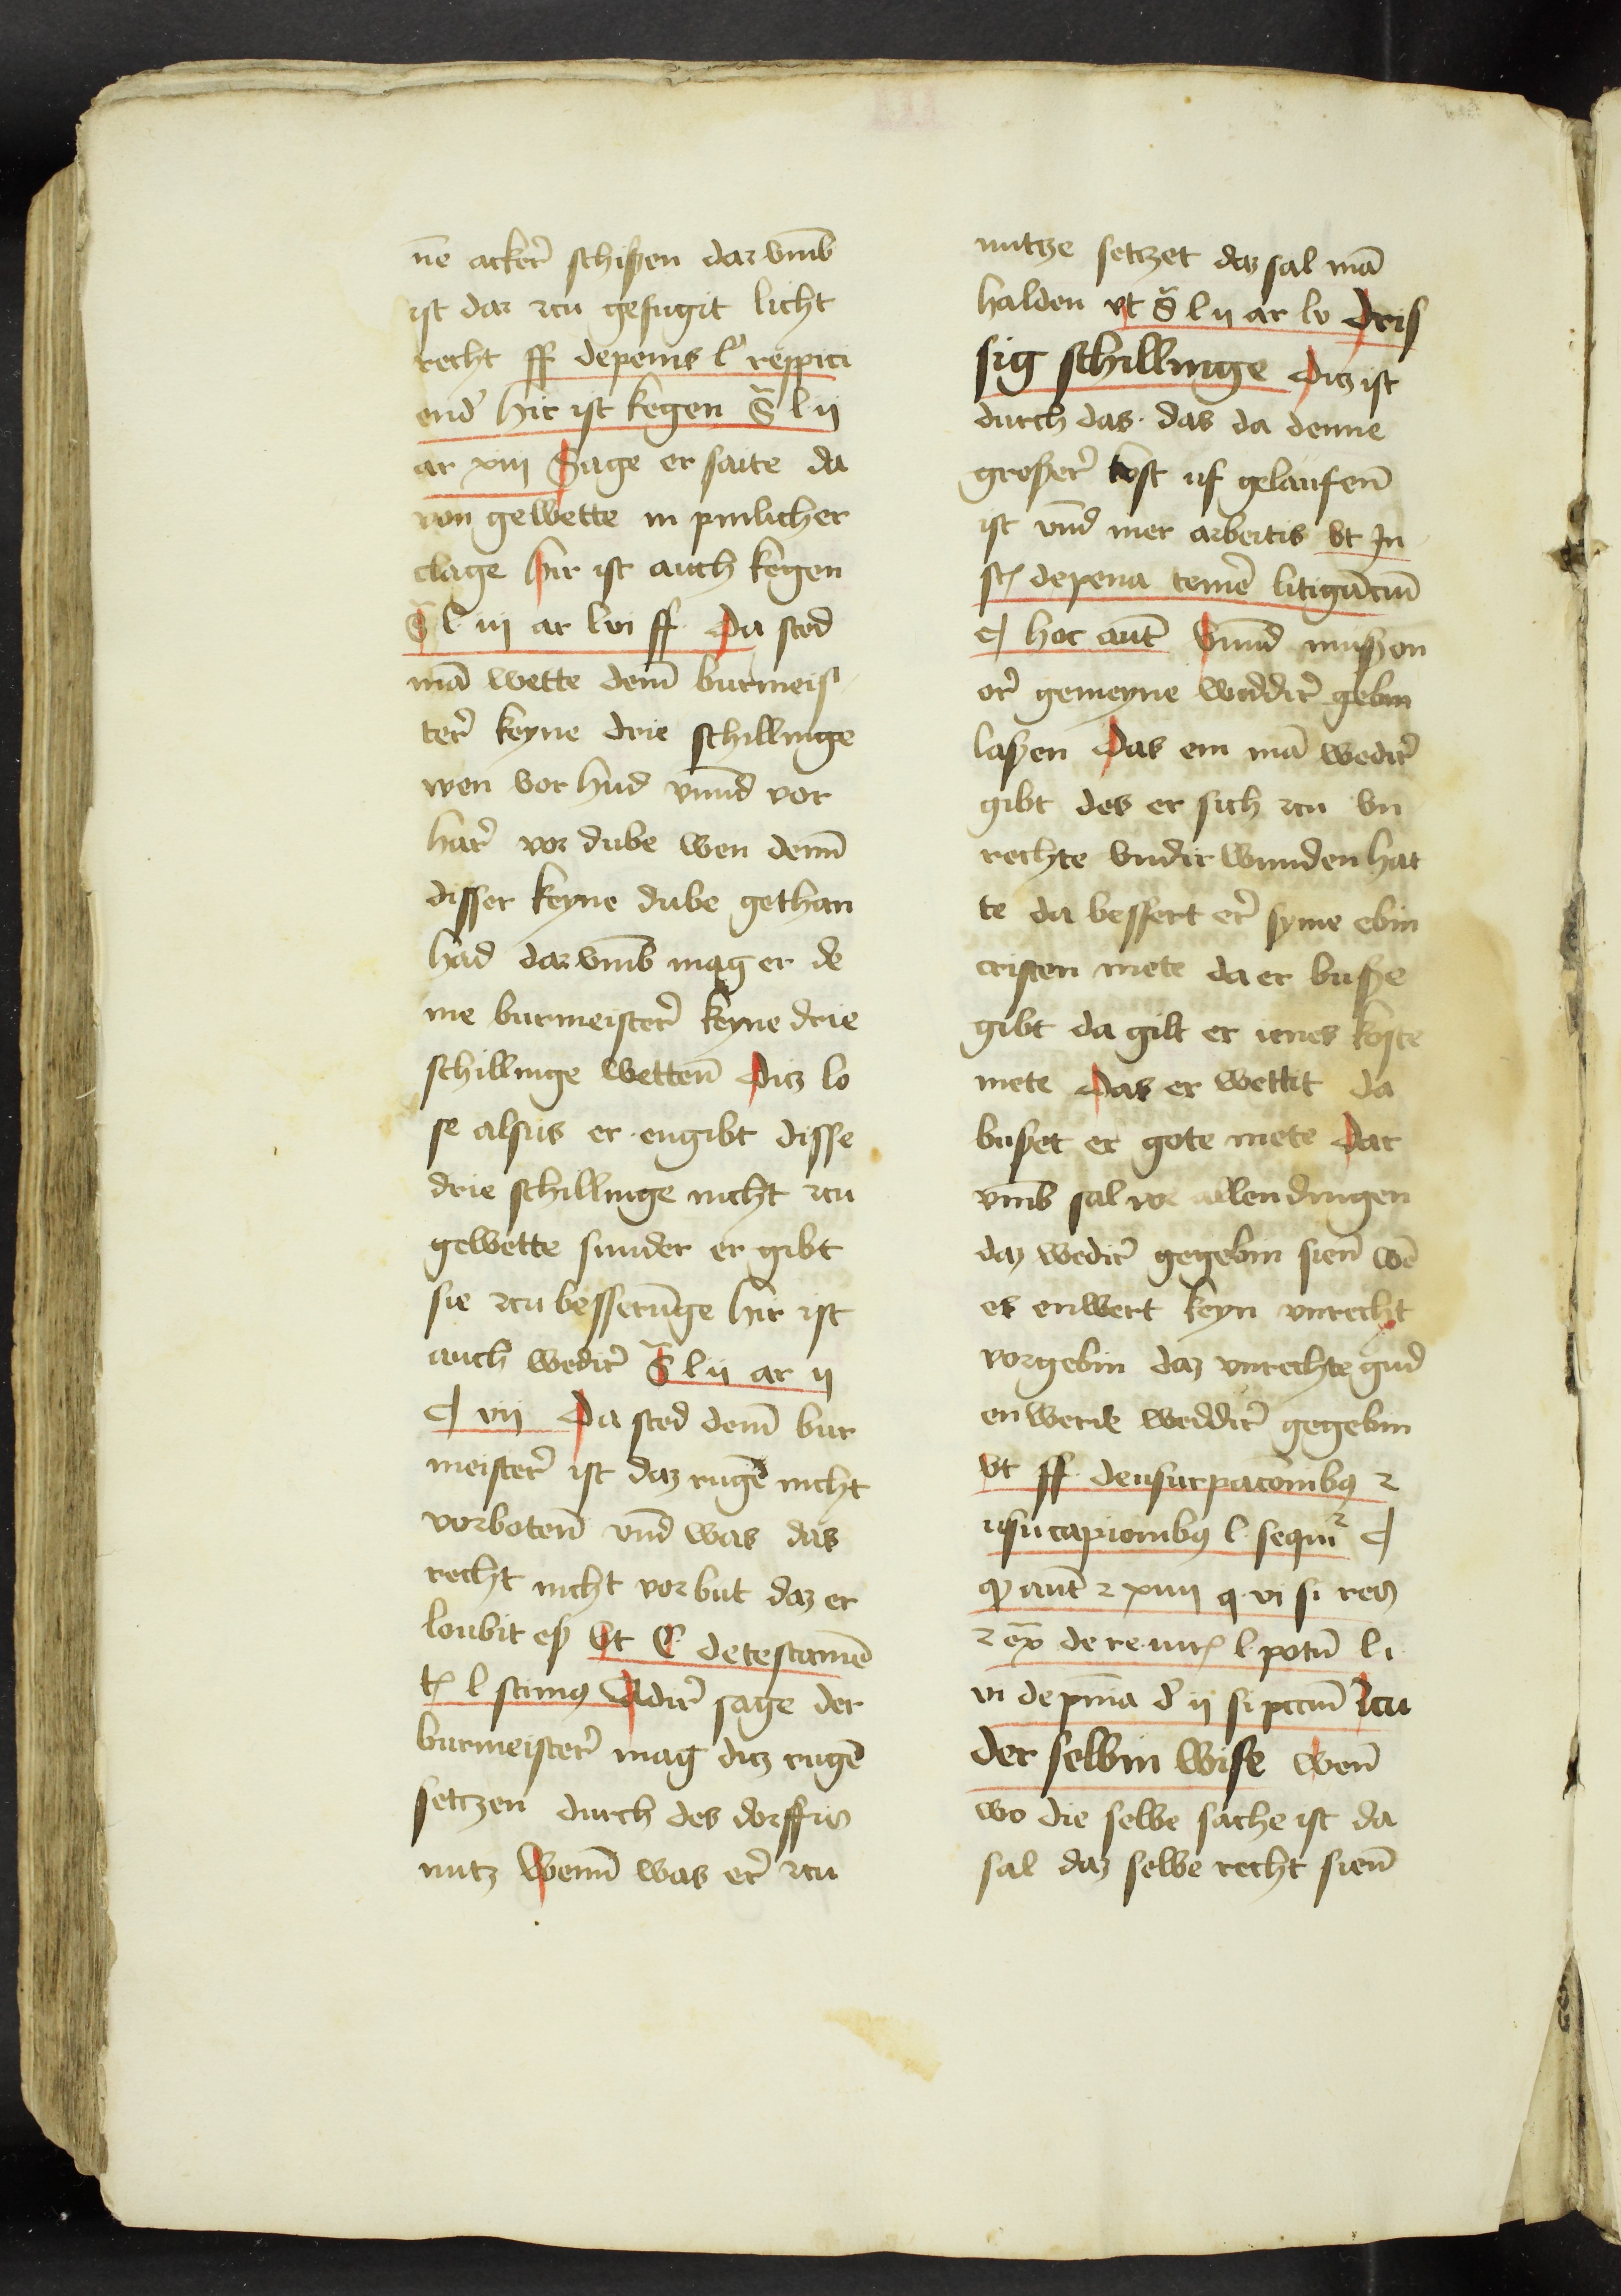 ne̅ acker̉ schißen dar vm̅b
ist dar zcu gefugit licht
recht ff depenis l̓ respici
end̓ hir ist kegen S̃ l ij
ar xiij Sage er saite da
von gewette in pinlicher
clage hir ist auch kegen
S̃ l iij ar lvi ff Da sted
ma̅ wette dem̅ burmeis
ter̉ keyne drie schillinge
wen vor hud vnn̅d vor
har̉ vor dube wen dem̅
disser keyne dube gethan
had dar vm̅b mag er de
me burmeister̉ keyne drie
schillinge wetten̅ Dicz lo
se alsus er engibt disse
drie schillinge nicht zcu
gewette sunder er gibt
sie zcu besseru̅ge hir ist
auch wedir̉ S̃ l ij ar ij
¶ vij Da sted dem̅ bur
meister̉ ist daz ruge̅ nicht
vorboten̅ vn̅d was das
recht nicht vorbut daz er
loubit eß vt C detestame̅
tꝭ l scimꝰ Adir̉ sage der
burmeister̉ mag dicz ruge̅
setczen durch des dorffis
nutz Wenn̅ was er̉ zcu
nutze setczet daz sal ma̅
halden vt S̃ l ij ar lv Dris
sig schillinge Dicz ist
durch das das da denne
großer̉ kost uf gelaufen̅
ist vn̅d mer arbeitis vt In
stꝭ depena teme̅ litiga̅ciu̅
¶ hoc aut̅ Vnn̅d mußen
or̉ gemeyne weddir̉ gebin
laßen Das ein ma̅ wedir̉
gibt des er sich zcu vn
rechte vndir wunden hat
te da bessert er̉ syme ebin
cristen mete da er buße
gibt da gilt er ienes koste
mete Das er wettet da
bußet er gote mete Dar
vm̅b sal vor allen dingen
daz wedir̉ gegebin sien̅ we̅
es enwert keyn vnrecht
vorgebin daz vnrechte gud
enwerde weddir̉ gegebin
vt ff deusurpac̅onibꝰ ⁊
usucapionibꝰ l sequit᷑ ¶
qᷣ aut̅ ⁊ xiiij q vi si res
⁊ ex̅ de re iurꝭ l potu̅ li
vi de pni̅a d̓ ij si pccm̅ Zcu
der selbin wise wen̅
wo die selbe sache ist da
sal daz selbe recht sien̅